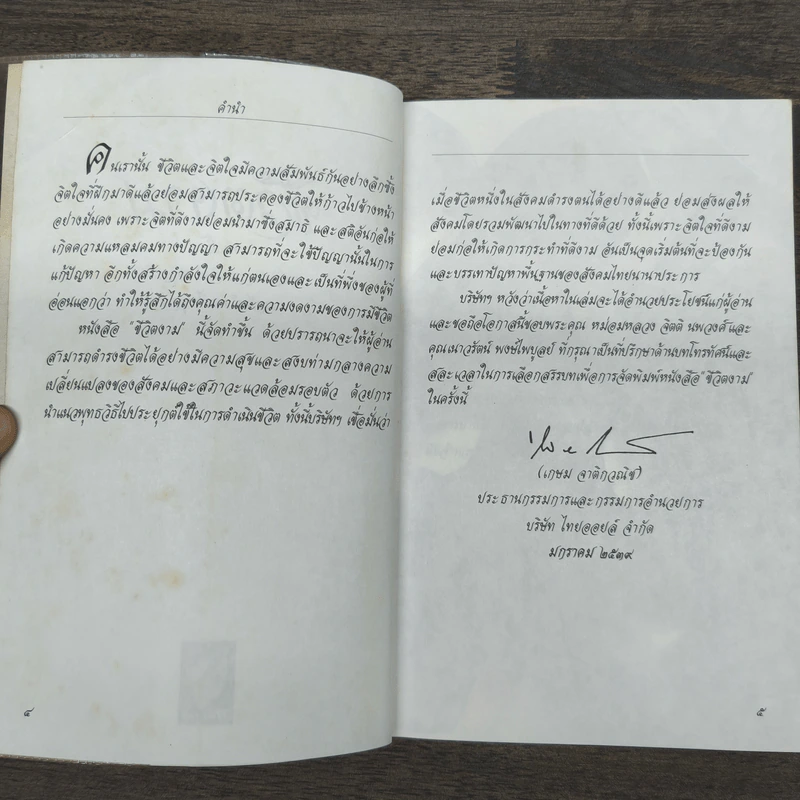 คำนำ
คนเรานั้น ชีวิตและจิตใจมีความสัมพันธ์กันอย่างลึกซึ้ง
จิตใจที่ฝึกมาดีแล้วย่อมสามารถประคองชีวิตให้ก้าวไปข้างหน้า
อย่างมั่นคง เพราะจิตที่ดีงามย่อมนำมาซึ่งสมาธิ และสติอันก่อให้
เกิดความแหลมคมทางปัญญา สามารถที่จะใช้ปัญญานั้นในการ
แก้ปัญหา อีกทั้งสร้างกำลังใจให้แก่ตนเองและเป็นที่พึ่งของผู้ที่
อ่อนแอกว่า ทำให้รู้สึกได้ถึงคุณค่าและความงดงามของการมีชีวิต
หนังสือ "ชีวิตงาม" นี้จัดทำขึ้น ด้วยปรารถนาจะให้ผู้อ่าน
สามารถดำรงชีวิตได้อย่างมีความสุขและสงบท่ามกลางความ
เปลี่ยนแปลงของสังคมและสภาวะแวดล้อมรอบตัว ด้วยการ
นำแนวพุทธวิธีไปประยุกต์ใช้ในการดำเนินชีวิต ทั้งนี้บริษัทฯ เชื่อมั่นว่า
๔
เมื่อชีวิตหนึ่งในสังคมดำรงตนได้อย่างดีแล้ว ย่อมส่งผลให้
สังคมโดยรวมพัฒนาไปในทางที่ดีด้วย ทั้งนี้เพราะจิตใจที่ดีงาม
ย่อมก่อให้เกิดการกระทำที่ดีงาม อันเป็นจุดเริ่มต้นที่จะป้องกัน
และบรรเทาปัญหาพื้นฐานของสังคมไทยนานาประการ
บริษัทฯ หวังว่าเนื้อหาในเล่มจะได้อำนวยประโยชน์แก่ผู้อ่าน
และขอถือโอกาสนี้ขอบพระคุณ หม่อมหลวง จิตติ นพวงศ์และ
คุณเนาวรัตน์ พงษ์ไพบูลย์ ที่กรุณาเป็นที่ปรึกษาด้านบทโทรทัศน์และ
สละเวลาในการเลือกสรรบทเพื่อการจัดพิมพ์หนังสือ"ชีวิตงาม"
ในครั้งนี้
(เกษม จาติกวณิช)
ประธานกรรมการและกรรมการอำนวยการ
บริษัท ไทยออยล์ จำกัด
มกราคม ๒๕๓๙
๕